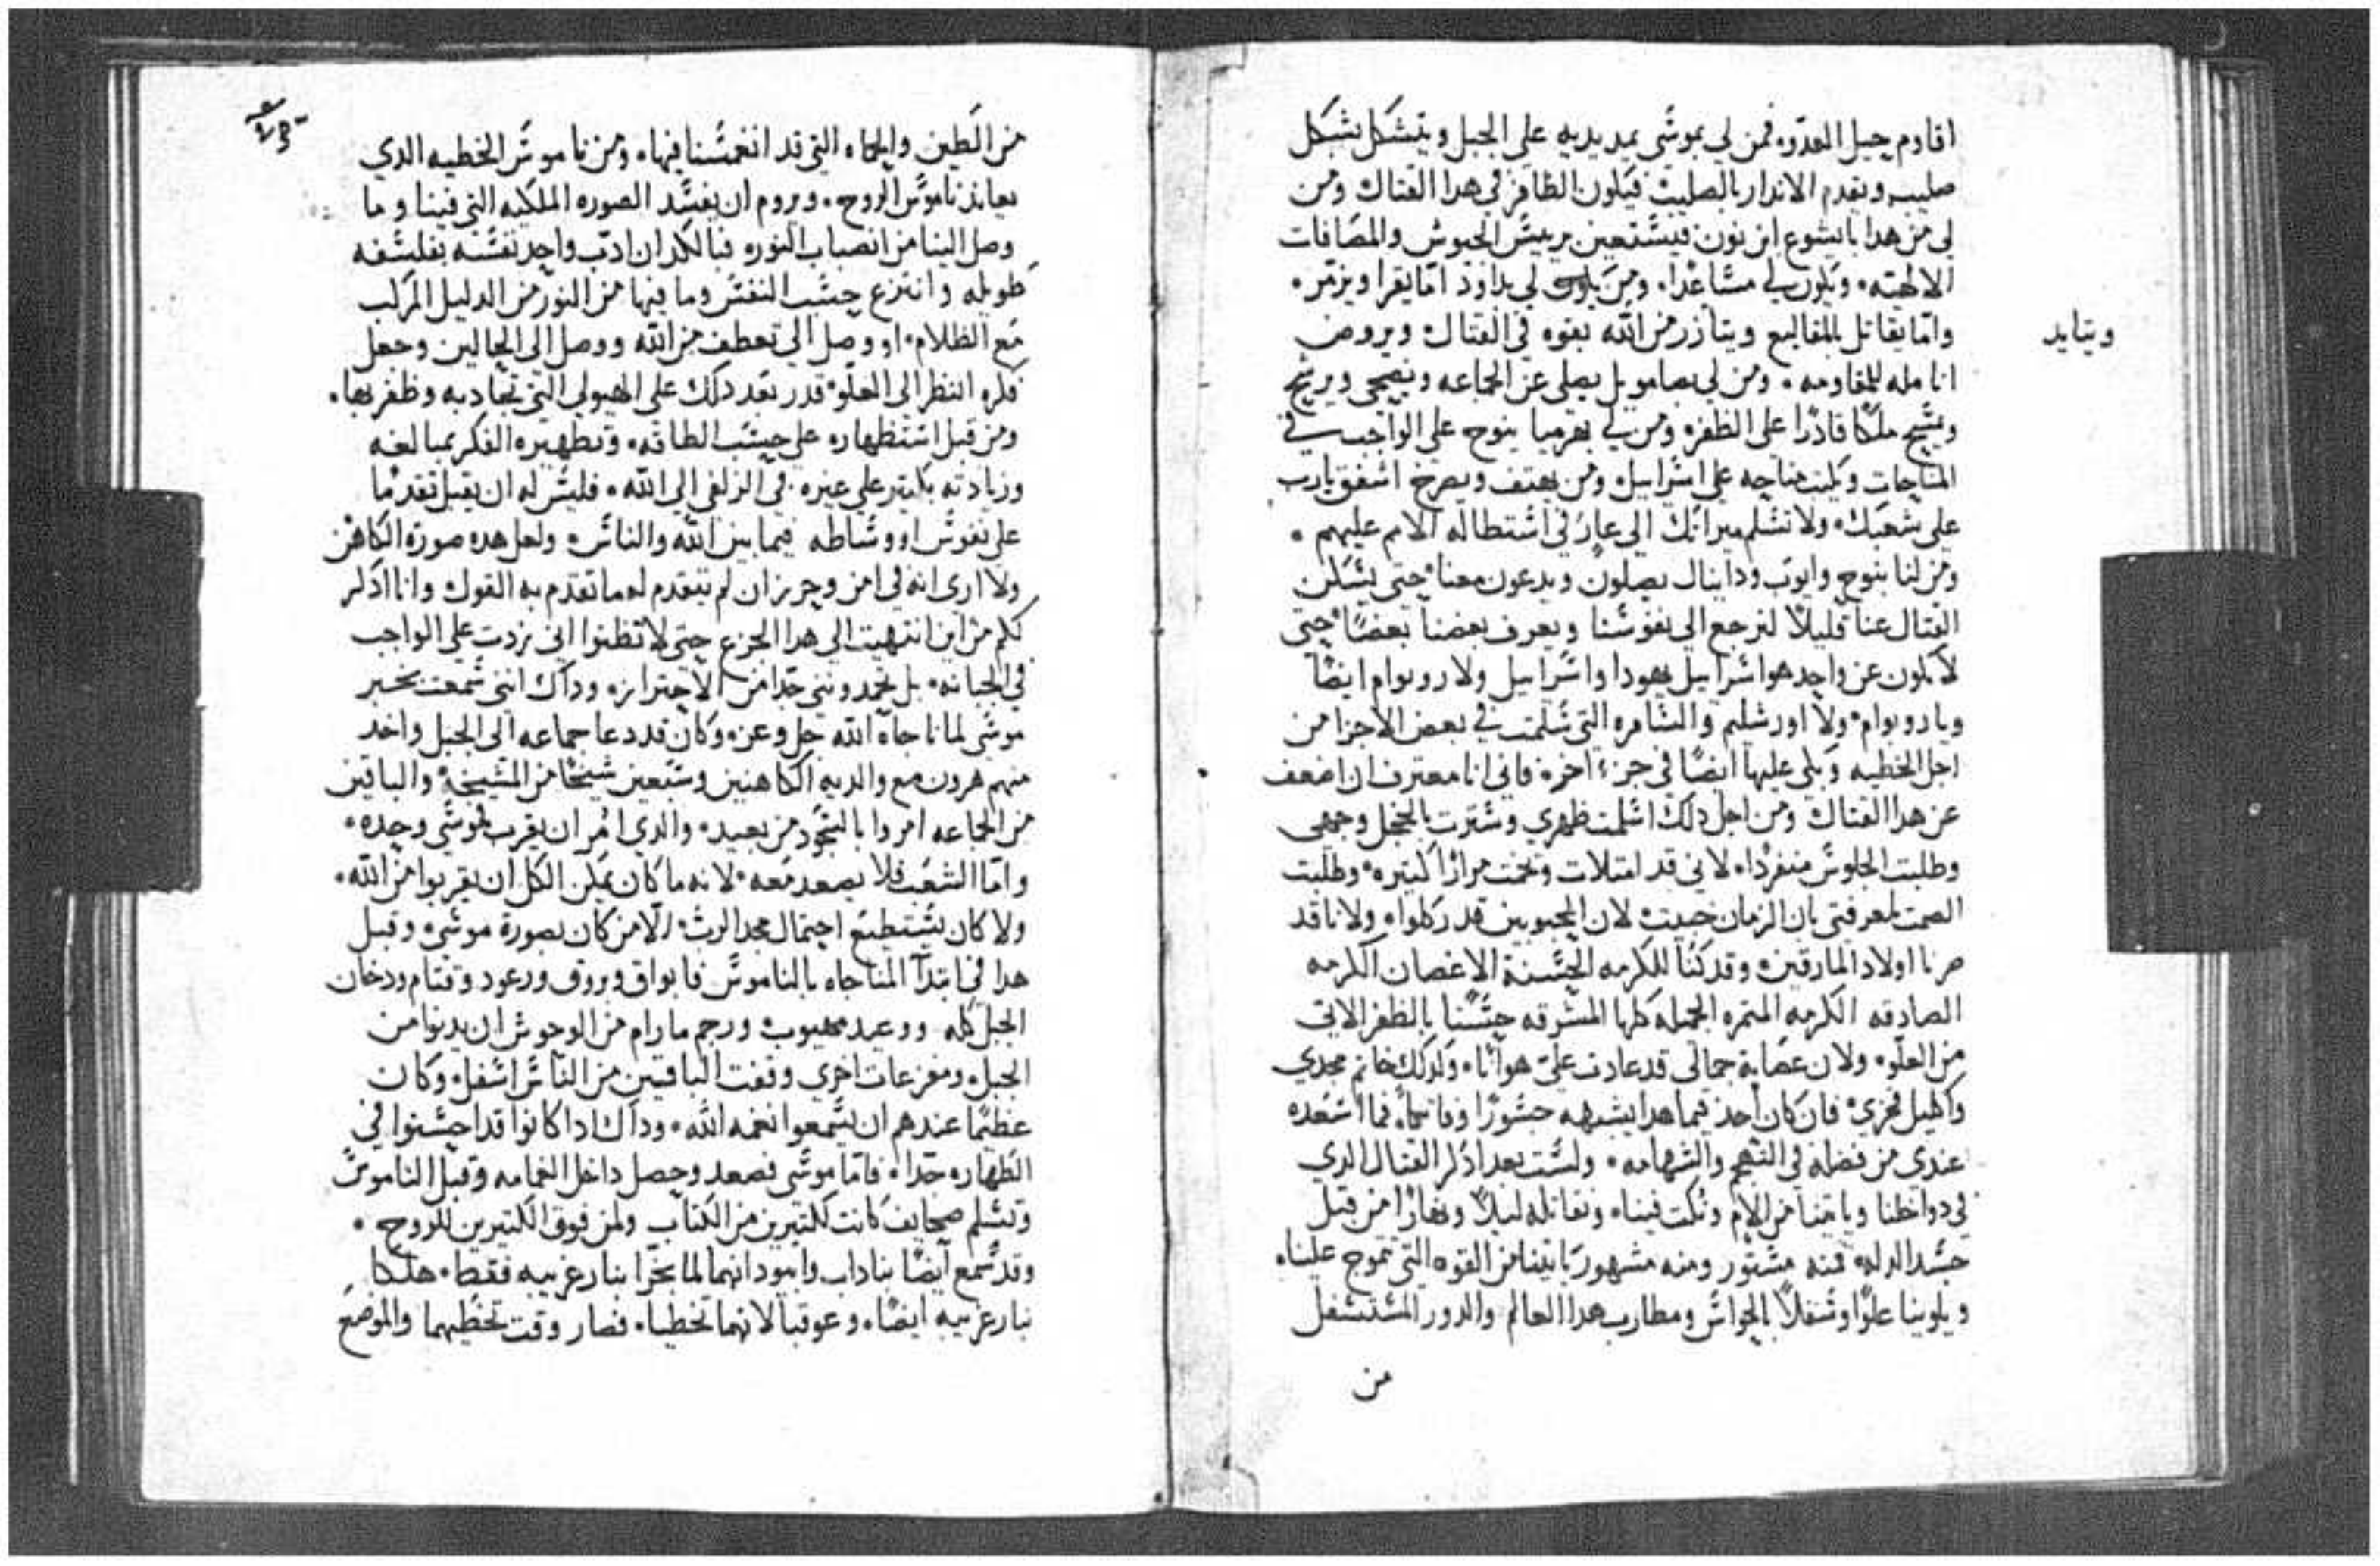 اقاوم جبل العدو، فمن لي بموسى يمد يديه على الجبل ويتشكل بشكل
صليب ويقدم الاندار بالصليب فيكون الظافر في هدا القتال ومن
لي من هدا بايشوع ابن نون فيستعين برييس الجيوش والمصافات
الالهيه، ويكون لي مساعدا، ومن يكون لي بداوود اما يقرا ويزمر،
واما يقاتل بالمقاليع ويتازر من الله بقوه في القتال ويروض
ويتايد
انامله للمقاومه، ومن لي بصامويل يصلي عن الجماعه ويضحي ويرشح
ويمسح ملكا قادرا على الظفر، ومن لي بهرميا ينوح على الواجب في
المناحات ويكتب مناحه على اسراييل، ومن يهتف ويصرخ اشفق يارب
على شعبك، ولا تسلم ميراثك الى عار في استطاله الامم عليهم،
ومن لنا بنوح وايوب ودانيال يصلون ويدعون معنا، حتى يسكن
القتال عنا قليلا لنرجع الى نفوسنا ويعرف بعضنا بعضا، حتى
لا نكون عن واحد هو اسراييل يهودا واسراييل ولا روبوام ايضا
وياروبوام، ولا اورشليم والسامره التي سلمت في بعض الاجزا من
اجل الخطيه وبكي عليها ايضا في جزء اخر، فاني انا معترف ان اضعف
عن هدا القتال ومن اجل دلك اسلمت ظهري وسترت بالخجل وجهي
وطلبت الجلوس منفردا، لاني قد امتلات مرارا كتيره، وطلبت
الصمت لمعرفتي بان الزمان خبيث، لان المحبوبين قد ركلوا، ولانا قد
صرنا اولاد المارقين، وقد كنا للكرمه الحسنة الاغصان الكرمه
الصادقه الكرمه المتمره الجميله كلها المشرقه حسنا بالظفر الاتي
من العلو، ولان عصابة جمالي قد عادت علي هوانا، وكدلك خاتم مجدي
واكليل فخري، فان كان احد فيما هدا يشبهه جسورا فما اسعده
عندي من فضله في التهجم والشهامه، ولست بعد ادكر القتال الدي
في دواخلنا وياتينا من الالام ونكت فينا، ونقاتله ليلا ونهارا من قبل
جسد الدله، فمنه مستور ومنه مشهور ياتينا من القوه التي تموج علينا،
ويلوينا علوا وسفلا بالحواس ومطارب هدا العالم والدور المستسفل
من
من الطين والحماه التي قد انغمسنا فيها، ومن ناموس الخطيه الدي
يعاند ناموس الروح، ويروم ان يفسد الصوره الملكيه التي فينا وما
وصل الينا من انصباب النور، فبالكد ان ادب واحد نفسه بفلسفه
طويله وانتزع حسب النفس وما فيها من النور من الدليل المركب
مع الظلام، او وصل الى تعطف من الله ووصل الى الحالين وجعل
فكره النظر الى العلو، قدر بعد دلك على الهيولي التي تجادبه وظفر بها،
ومن قبل استظهاره على حسب الطاقه، وتطهيره الفكر بمبالغه
وزيادته بكتير على غيره، في الزلفى الى الله، فليس له ان يقبل تقدما
على نفوس او وساطه فيما بين الله والناس، ولعل هده صورة الكاهن
ولا ارى انه في امن وحريز ان لم يتقدم له ما تقدم به القول وانا ادكر
لكم من اين انتهيت الى هدا الجزع حتى لا تظنوا اني زدت على الواجب
في الجبانه، بل تحمدونني جدا من الاحتراز، وداك انني سمعت بخبر
موسى لما ناجاه الله جل وعز، وكان قد دعا جماعه الى الجبل واحد
منهم هرون مع والديه الكاهنين وسبعين شيخا من المشيخه، والباقين
من الجماعه امروا بالسجود من بعيد، والدي امر ان يقرب لموسى وحده،
واما الشعب فلا يصعد معه، لانه ما كان يمكن الكل ان يقربوا من الله،
ولا كان يستطيع احتمال مجد الرب، الا من كان بصورة موسى، وقبل
هدا في ابتدآ المناجاه بالناموس فابواق وبروق ورعود وقتام ودخان
الجبل كله ووعيد مهيوب ورجم مارام من الوحوش ان يدنوا من
الجبل، ومفزعات اخرى وقفت الباقيين من الناس اسفل، وكان
عظيما عندهم ان يسمعوا نغمه الله، وداك ادا كانوا قد احسنوا في
الطهاره جدا، فاما موسى فصعد وحصل داخل الغمامه وقبل الناموس
وتسلم صحايف كانت للكتيرين من الكتاب ولمن فوق الكتيرين للروح،
وقد سمع ايضا بناداب وابيود انهما لما بخرا بنار غريبه فقط، هلكا
بنار غريبه ايضا، وعوقبا لانهما تخطيا، فصار وقت تخطيهما والموضع